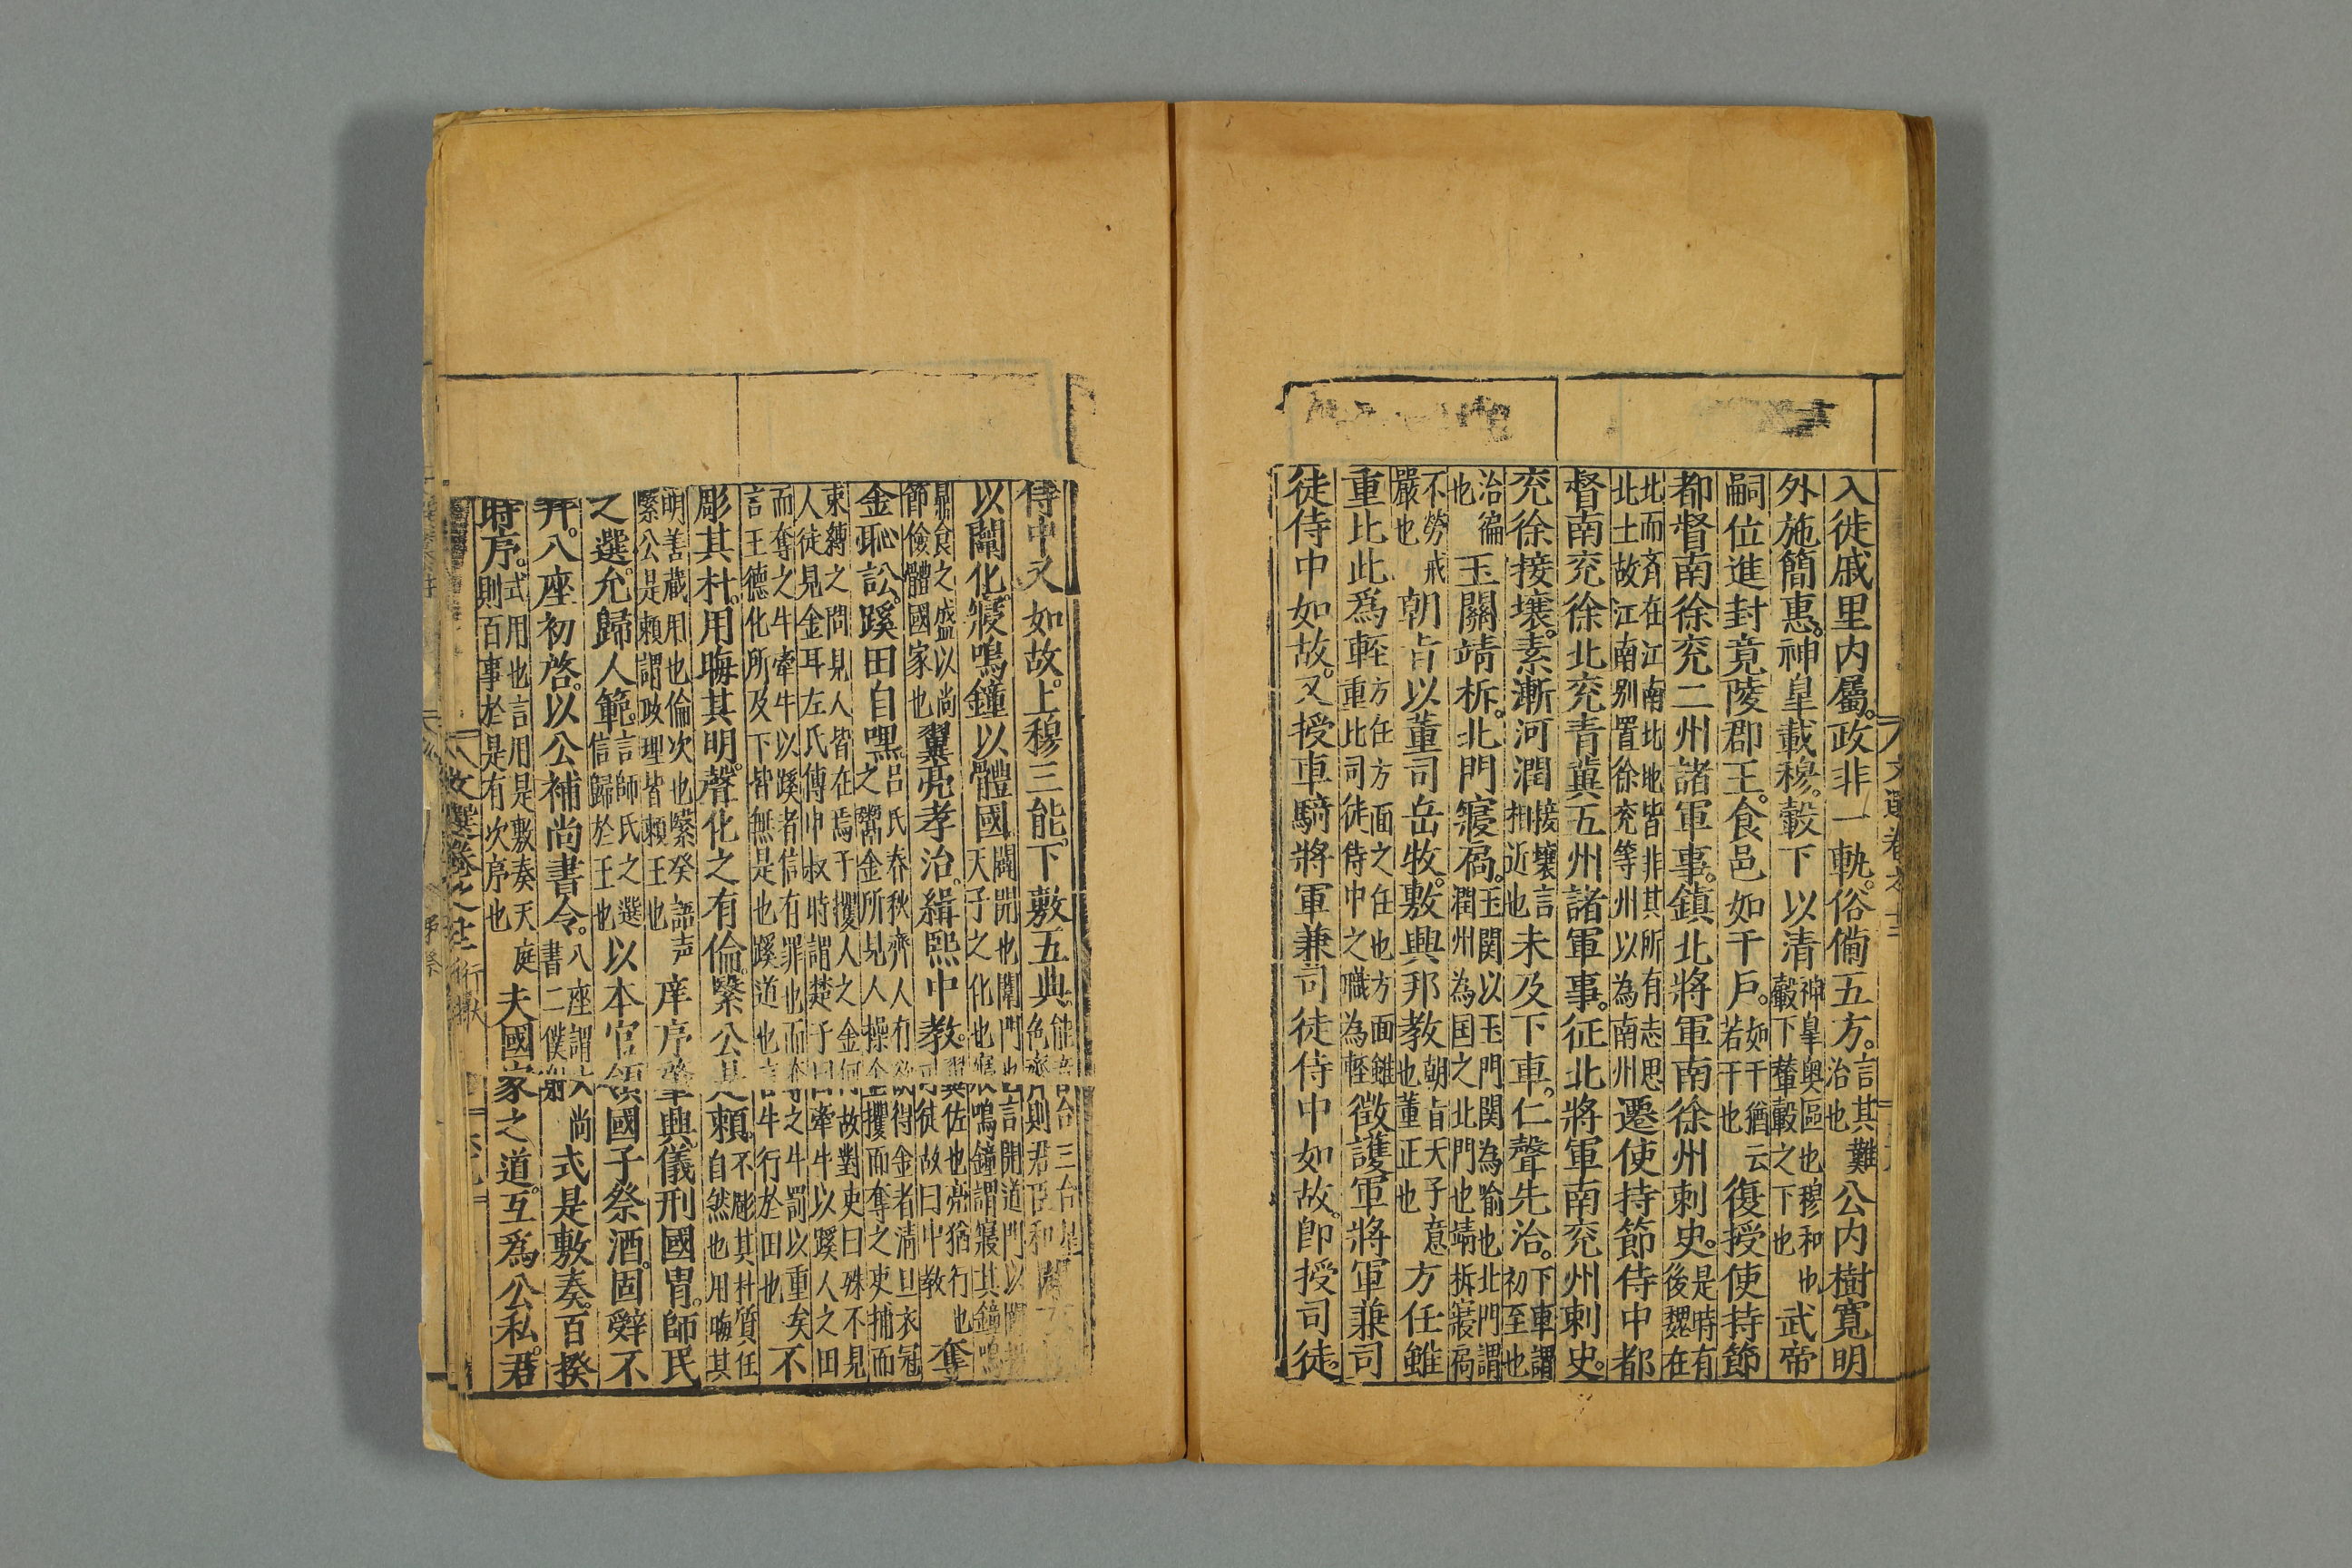 入徙戚里内屬。政非一軌。俗僃五方。言其難治也公内樹寛明
外施簡惠。神皐載穆。轂下以清神皐奥區也穆和也轂下輦轂之下也武帝
嗣位進封竟陵郡王。食邑如干戶。如干猶云若干也復授使持節
都督南徐兖二州諸軍事。鎮北將軍南徐州刺史。是時有後魏在
北而斉在江南北地皆非其所有志思北土故江南别置徐兖等州以為南州遷使持節侍中都
督南兖徐北兖青冀五州諸軍事。征北將軍南兖州刺史。
兖徐接壤。素漸河潤接壤言相近也未及下車。仁聲先洽。下車謂初至也
洽徧也玉關靖柝。北門寢扄。玉関以玉門関為喻也北門謂潤州為国之北門也靖柝寢扄
不勞戒嚴也朝㫖以董司岳牧。敷興邦教朝㫖天子意也董正也方任雖
重比此爲輊方任方面之任也方面雖重比司徒侍中之職為輊徵護軍將軍兼司
徒侍中如故。又授車騎將軍兼司徒侍中如故。卽授司徒。
侍中又如故。上穆三能。下敷五典
以闡化。寢鳴鐘以體國
鼎食之盛以尚節儉體國家也翼亮孝治。緝熙中教。奪
金恥訟。蹊田自嘿。吕氏春秋齊人有欲得金者清旦衣冠之鬻金所見人操金攫而奪之吏捕而
束縳之問見人皆在焉子攫人之金何故對吏曰殊不見人徒見金耳左氏傳申叔時謂楚子曰牽牛以蹊人之田
而奪之牛牽牛以蹊者信有罪也而奪之牛罰以重矣言王德化所及下皆無是也蹊道也言牛行於田也不
彫其朴。用晦其明。聲化之有倫。繄公是賴。不彫其朴質任自然也用晦其
明善蔵用也倫次也繄癸語声繄公是頼謂政理皆頼王也庠序肇興。儀刑國胄。師氏
之選。允歸人範。言師氏之選信歸於王也以本官領國子祭酒。固辤不
拜。八座初啓。以公補尚書令。式是敷奏。百揆
時序。式用也言用是敷奏天庭則百事於是有次序也夫國家之道。互爲公私。君